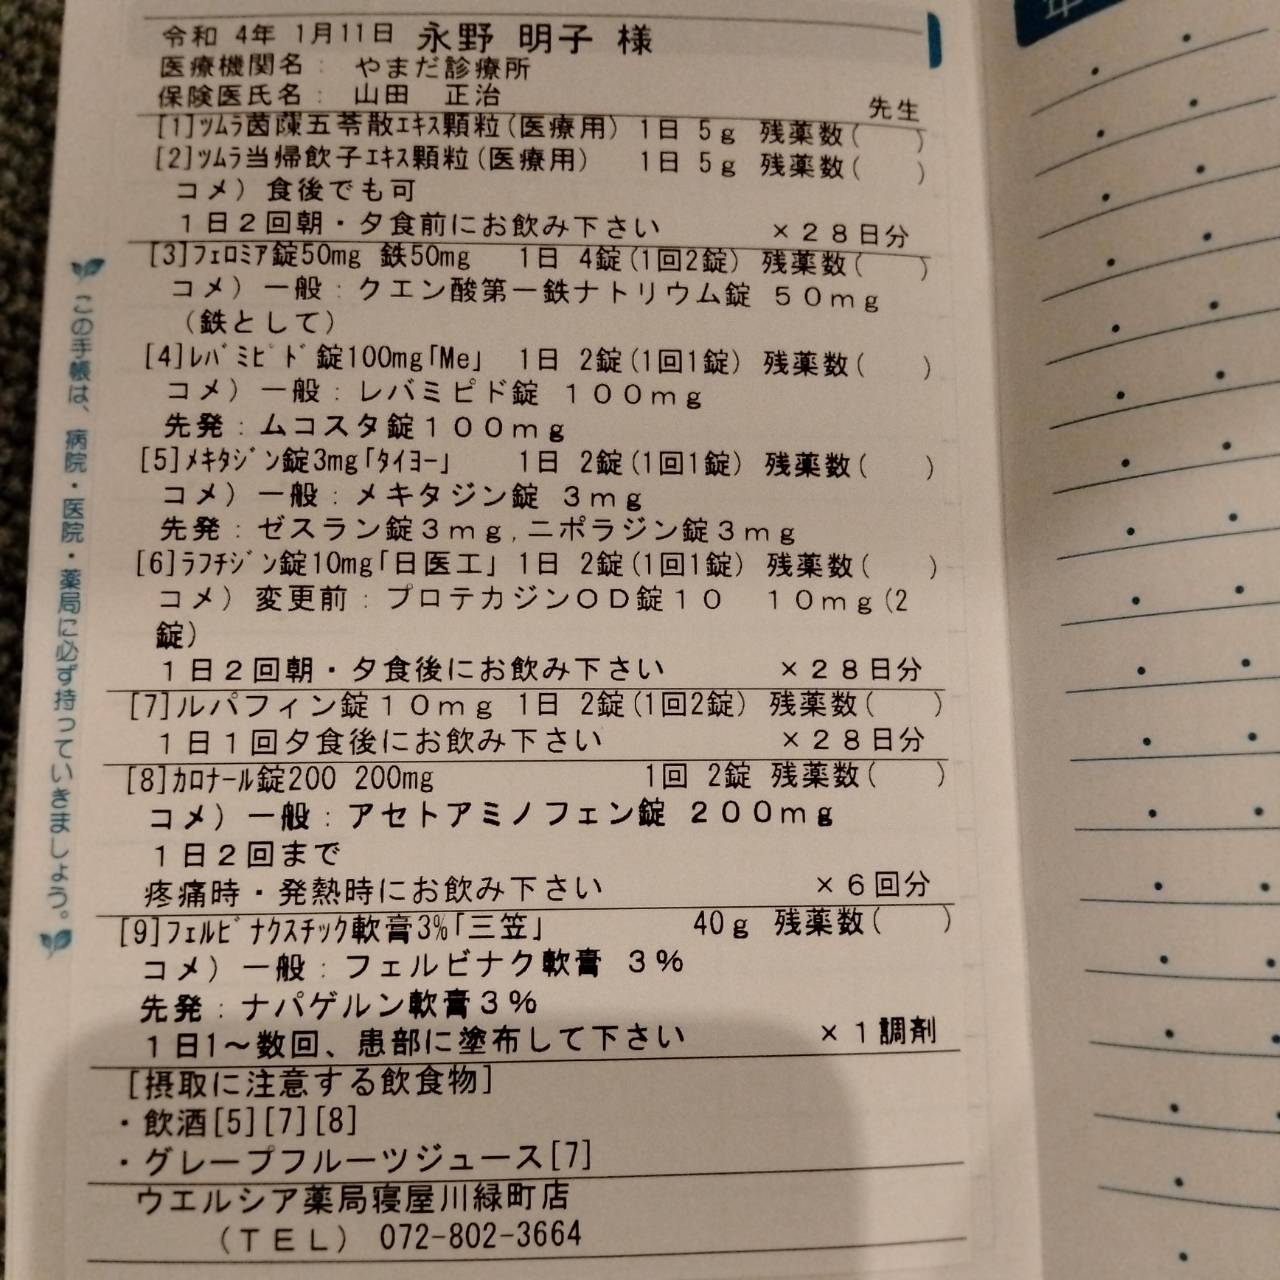 令和 4年 1月11日 永野 明子 様
医療機関名： やまだ診療所
保険医氏名： 山田 正治 先生
[1]ﾂﾑﾗ茵蔯五苓散ｴｷｽ顆粒(医療用) 1日 5ｇ 残薬数( )
[2]ﾂﾑﾗ当帰飲子ｴｷｽ顆粒(医療用) 1日 5ｇ 残薬数( )
コメ）食後でも可
１日２回朝・夕食前にお飲み下さい ×２８日分
[3]ﾌｪﾛﾐｱ錠50mg 鉄50mg 1日 4錠(1回2錠) 残薬数( )
コメ）一般：クエン酸第一鉄ナトリウム錠 ５０ｍｇ
（鉄として）
[4]ﾚﾊﾞﾐﾋﾟﾄﾞ錠100mg｢Me｣ 1日 2錠(1回1錠) 残薬数( )
コメ）一般：レバミピド錠 １００ｍｇ
先発：ムコスタ錠１００ｍｇ
[5]ﾒｷﾀｼﾞﾝ錠3mg｢ﾀｲﾖｰ｣ 1日 2錠(1回1錠) 残薬数( )
コメ）一般：メキタジン錠 ３ｍｇ
先発：ゼスラン錠３ｍｇ,ニポラジン錠３ｍｇ
[6]ﾗﾌﾁｼﾞﾝ錠10mg｢日医工｣ 1日 2錠(1回1錠) 残薬数( )
コメ）変更前：プロテカジンＯＤ錠１０ １０ｍｇ(２
錠)
１日２回朝・夕食後にお飲み下さい ×２８日分
[7]ルパフィン錠１０ｍｇ 1日 2錠(1回2錠) 残薬数( )
１日１回夕食後にお飲み下さい ×２８日分
[8]ｶﾛﾅｰﾙ錠200 200mg 1回 2錠 残薬数( )
コメ）一般：アセトアミノフェン錠 ２００ｍｇ
１日２回まで
疼痛時・発熱時にお飲み下さい ×６回分
[9]ﾌｪﾙﾋﾞﾅｸｽﾁｯｸ軟膏3%｢三笠｣ 40ｇ 残薬数( )
コメ）一般：フェルビナク軟膏 ３％
先発：ナパゲルン軟膏３％
１日1～数回、患部に塗布して下さい ×１調剤
[摂取に注意する飲食物]
・飲酒[5][7][8]
・グレープフルーツジュース[7]
ウエルシア薬局寝屋川緑町店
（ＴＥＬ） 072-802-3664
この手帳は、病院・医院・薬局に必ず持っていきましょう。